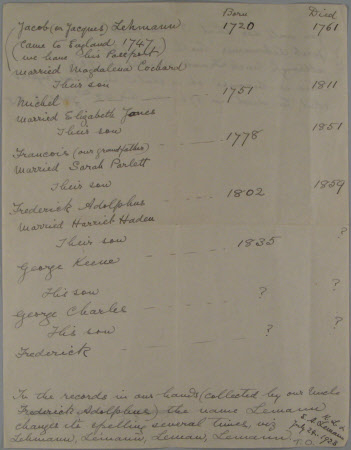 Born Died
Jacob (or Jacques) Lehmann 1720 1761
(Came to England 1747
(we have his Passport)
married Magdalena Cochard
Their son
Michel 1751 1811
Married Elizabeth Jones
Their son
Francois (our grandfather) 1778 1851
Married Sarah Parlett
Their son
Frederick Adolphus 1802 1859
Married Harriet Haden
Their son
George Keene 1835 ?
His son
George Charles ? ?
His son
Frederick ? ?
In the records in our hands (collected by our Uncle
Frederick Adolphus) the name Lemann
changes its spelling several times, viz
Lehmann, Lemann, Leman, Lemann.
Lemann
July 26. 1928
T.O.